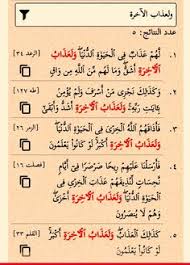 ولعذاب الآخرة
عدد النتائج: ٥
١. لَّهُمْ عَذَابٌ فِي الْحَيَوٰةِ الدُّنْيَا ۖ وَلَعَذَابُ [الرعد ٣٤]
الْآخِرَةِ أَشَقُّ ۖ وَمَا لَهُم مِّنَ اللَّهِ مِن وَاقٍ
٢. وَكَذَٰلِكَ نَجْزِي مَنْ أَسْرَفَ وَلَمْ يُؤْمِن [طه ١٢٧]
بِـَٔايَٰتِ رَبِّهِ ۚ وَلَعَذَابُ الْآخِرَةِ أَشَدُّ وَأَبْقَىٰ
٣. فَأَذَاقَهُمُ اللَّهُ الْخِزْيَ فِي الْحَيَوٰةِ [الزمر ٢٦]
الدُّنْيَا ۖ وَلَعَذَابُ الْآخِرَةِ أَكْبَرُ ۚ
لَوْ كَانُوا يَعْلَمُونَ
٤. فَأَرْسَلْنَا عَلَيْهِمْ رِيحًا صَرْصَرًا فِي أَيَّامٍ [فصلت ١٦]
نَّحِسَاتٍ لِّنُذِيقَهُمْ عَذَابَ الْخِزْيِ فِي الْحَيَوٰةِ
الدُّنْيَا ۖ وَلَعَذَابُ الْآخِرَةِ أَخْزَىٰ ۖ
وَهُمْ لَا يُنصَرُونَ
٥. كَذَٰلِكَ الْعَذَابُ ۖ وَلَعَذَابُ الْآخِرَةِ أَكْبَرُ ۚ [القلم ٣٣]
لَوْ كَانُوا يَعْلَمُونَ